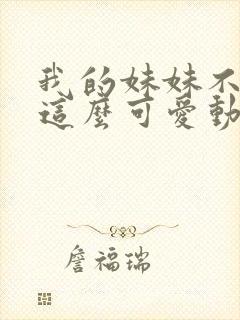 我的妹妹不
這麼可愛動
詹福瑞